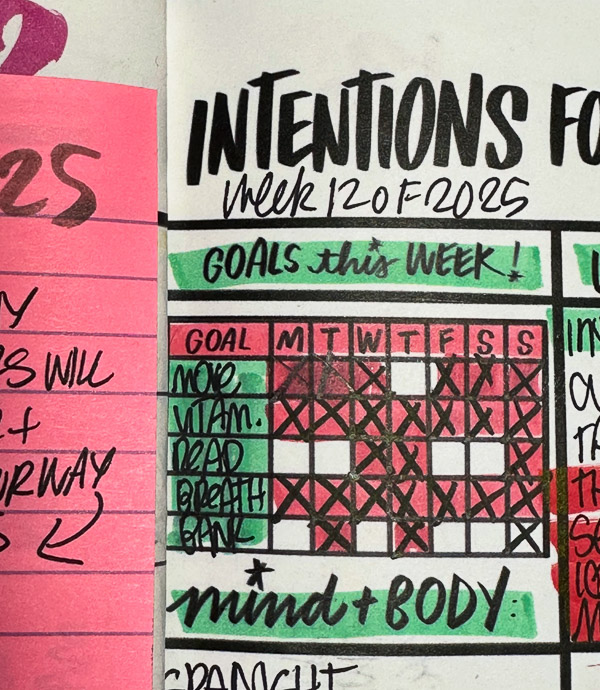 25
Y
S WILL
URWAY
INTENTIONS FO
Week 12 OF 2025
GOALS this WEEK!
GOAL M T W T F S S
MOVE X X X X X X
VITAM. X X X X X X X
READ X X X
BREATH X X X X X X X
BANK X X X
mind + BODY: